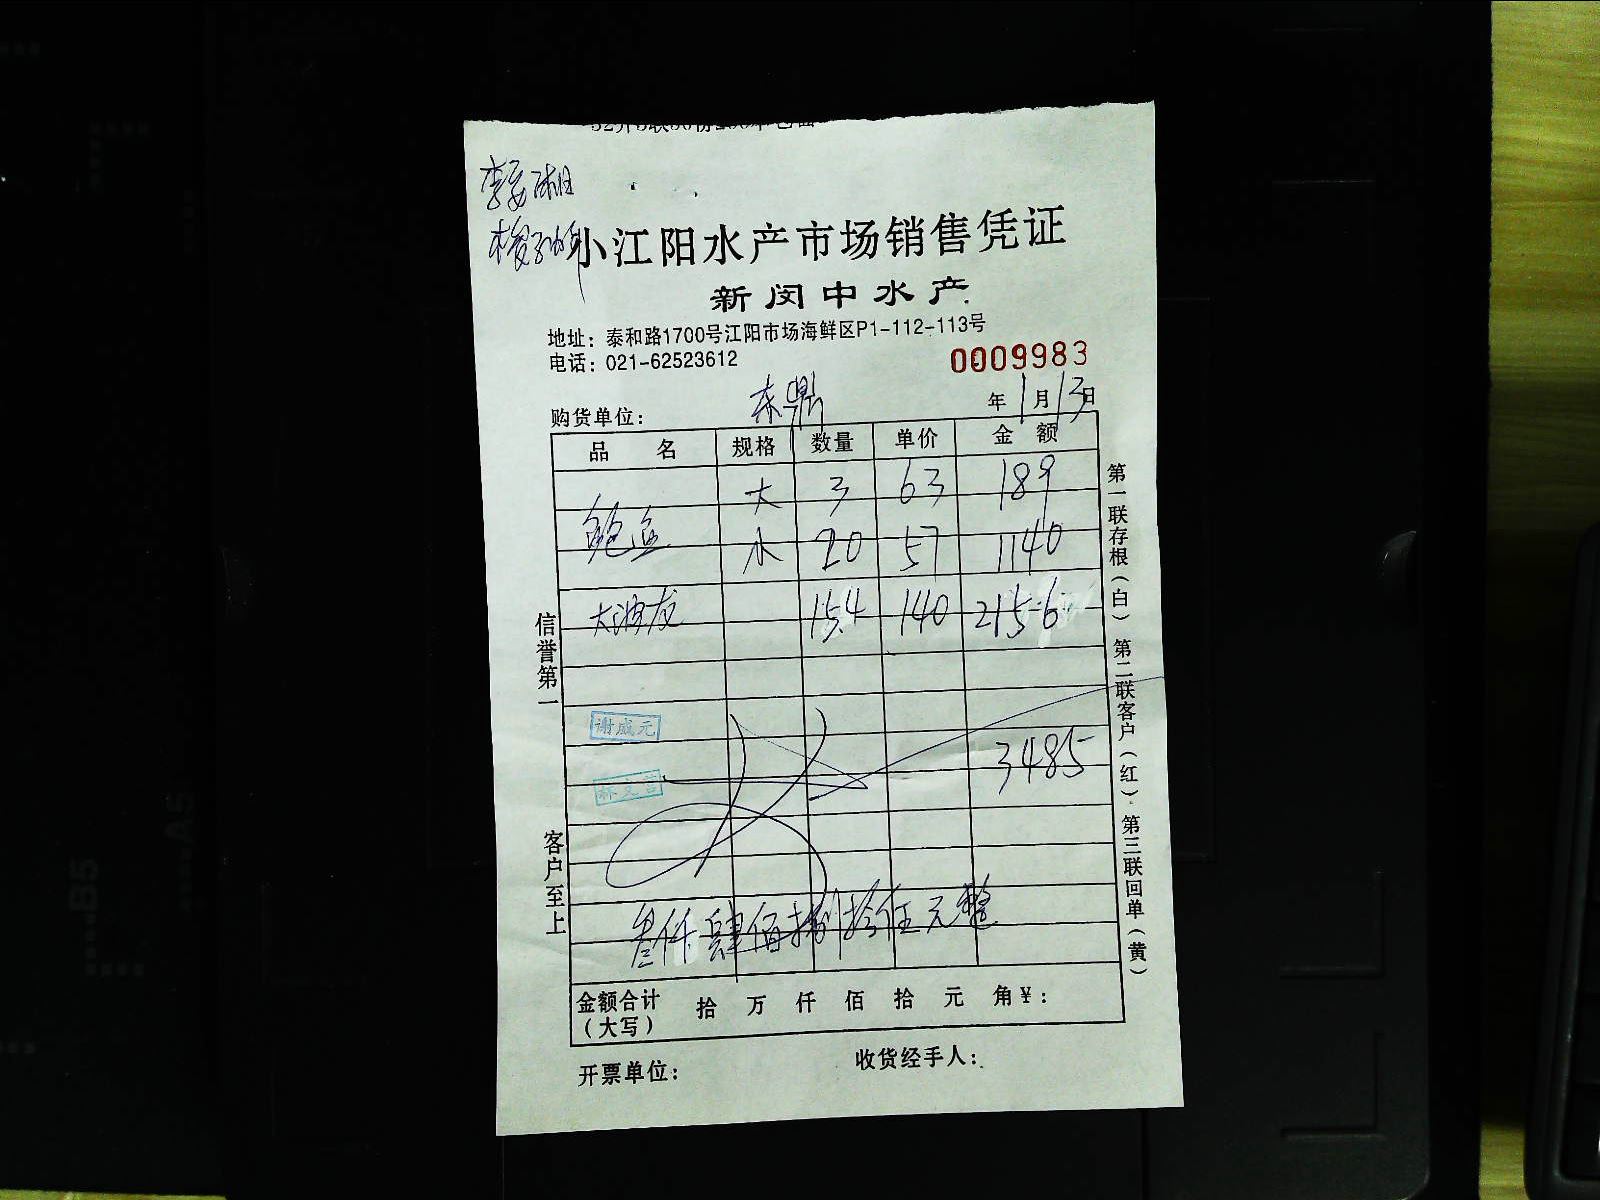 小江阳水产市场销售凭证
新闵中水产
地址：泰和路1700号江阳市场海鲜区P1-112-113号
电话：021-62523612
0009983
购货单位： 东鼎 年 1 月 13 日
品 名 规格 数量 单价 金 额
大 3 63 189
鲍鱼 小 20 57 1140
大油龙 15.4 140 2156
谢成元
3485
叁仟肆佰捌拾伍元整
金额合计（大写） 拾 万 仟 佰 拾 元 角￥：
开票单位： 收货经手人：
信誉第一 客户至上
第一联存根（白） 第二联客户（红） 第三联回单（黄）
B5
A5